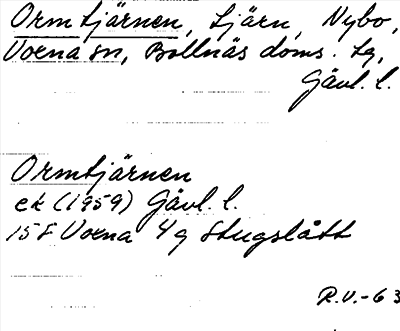 Ormtjärnen, tjärn, Nybo,
Voxna sn, Bollnäs doms. tg,
Gävl. l.
Ormtjärnen
ek (1959) Gävl. l.
15F Voxna 4g Stugslått
R.V.-63